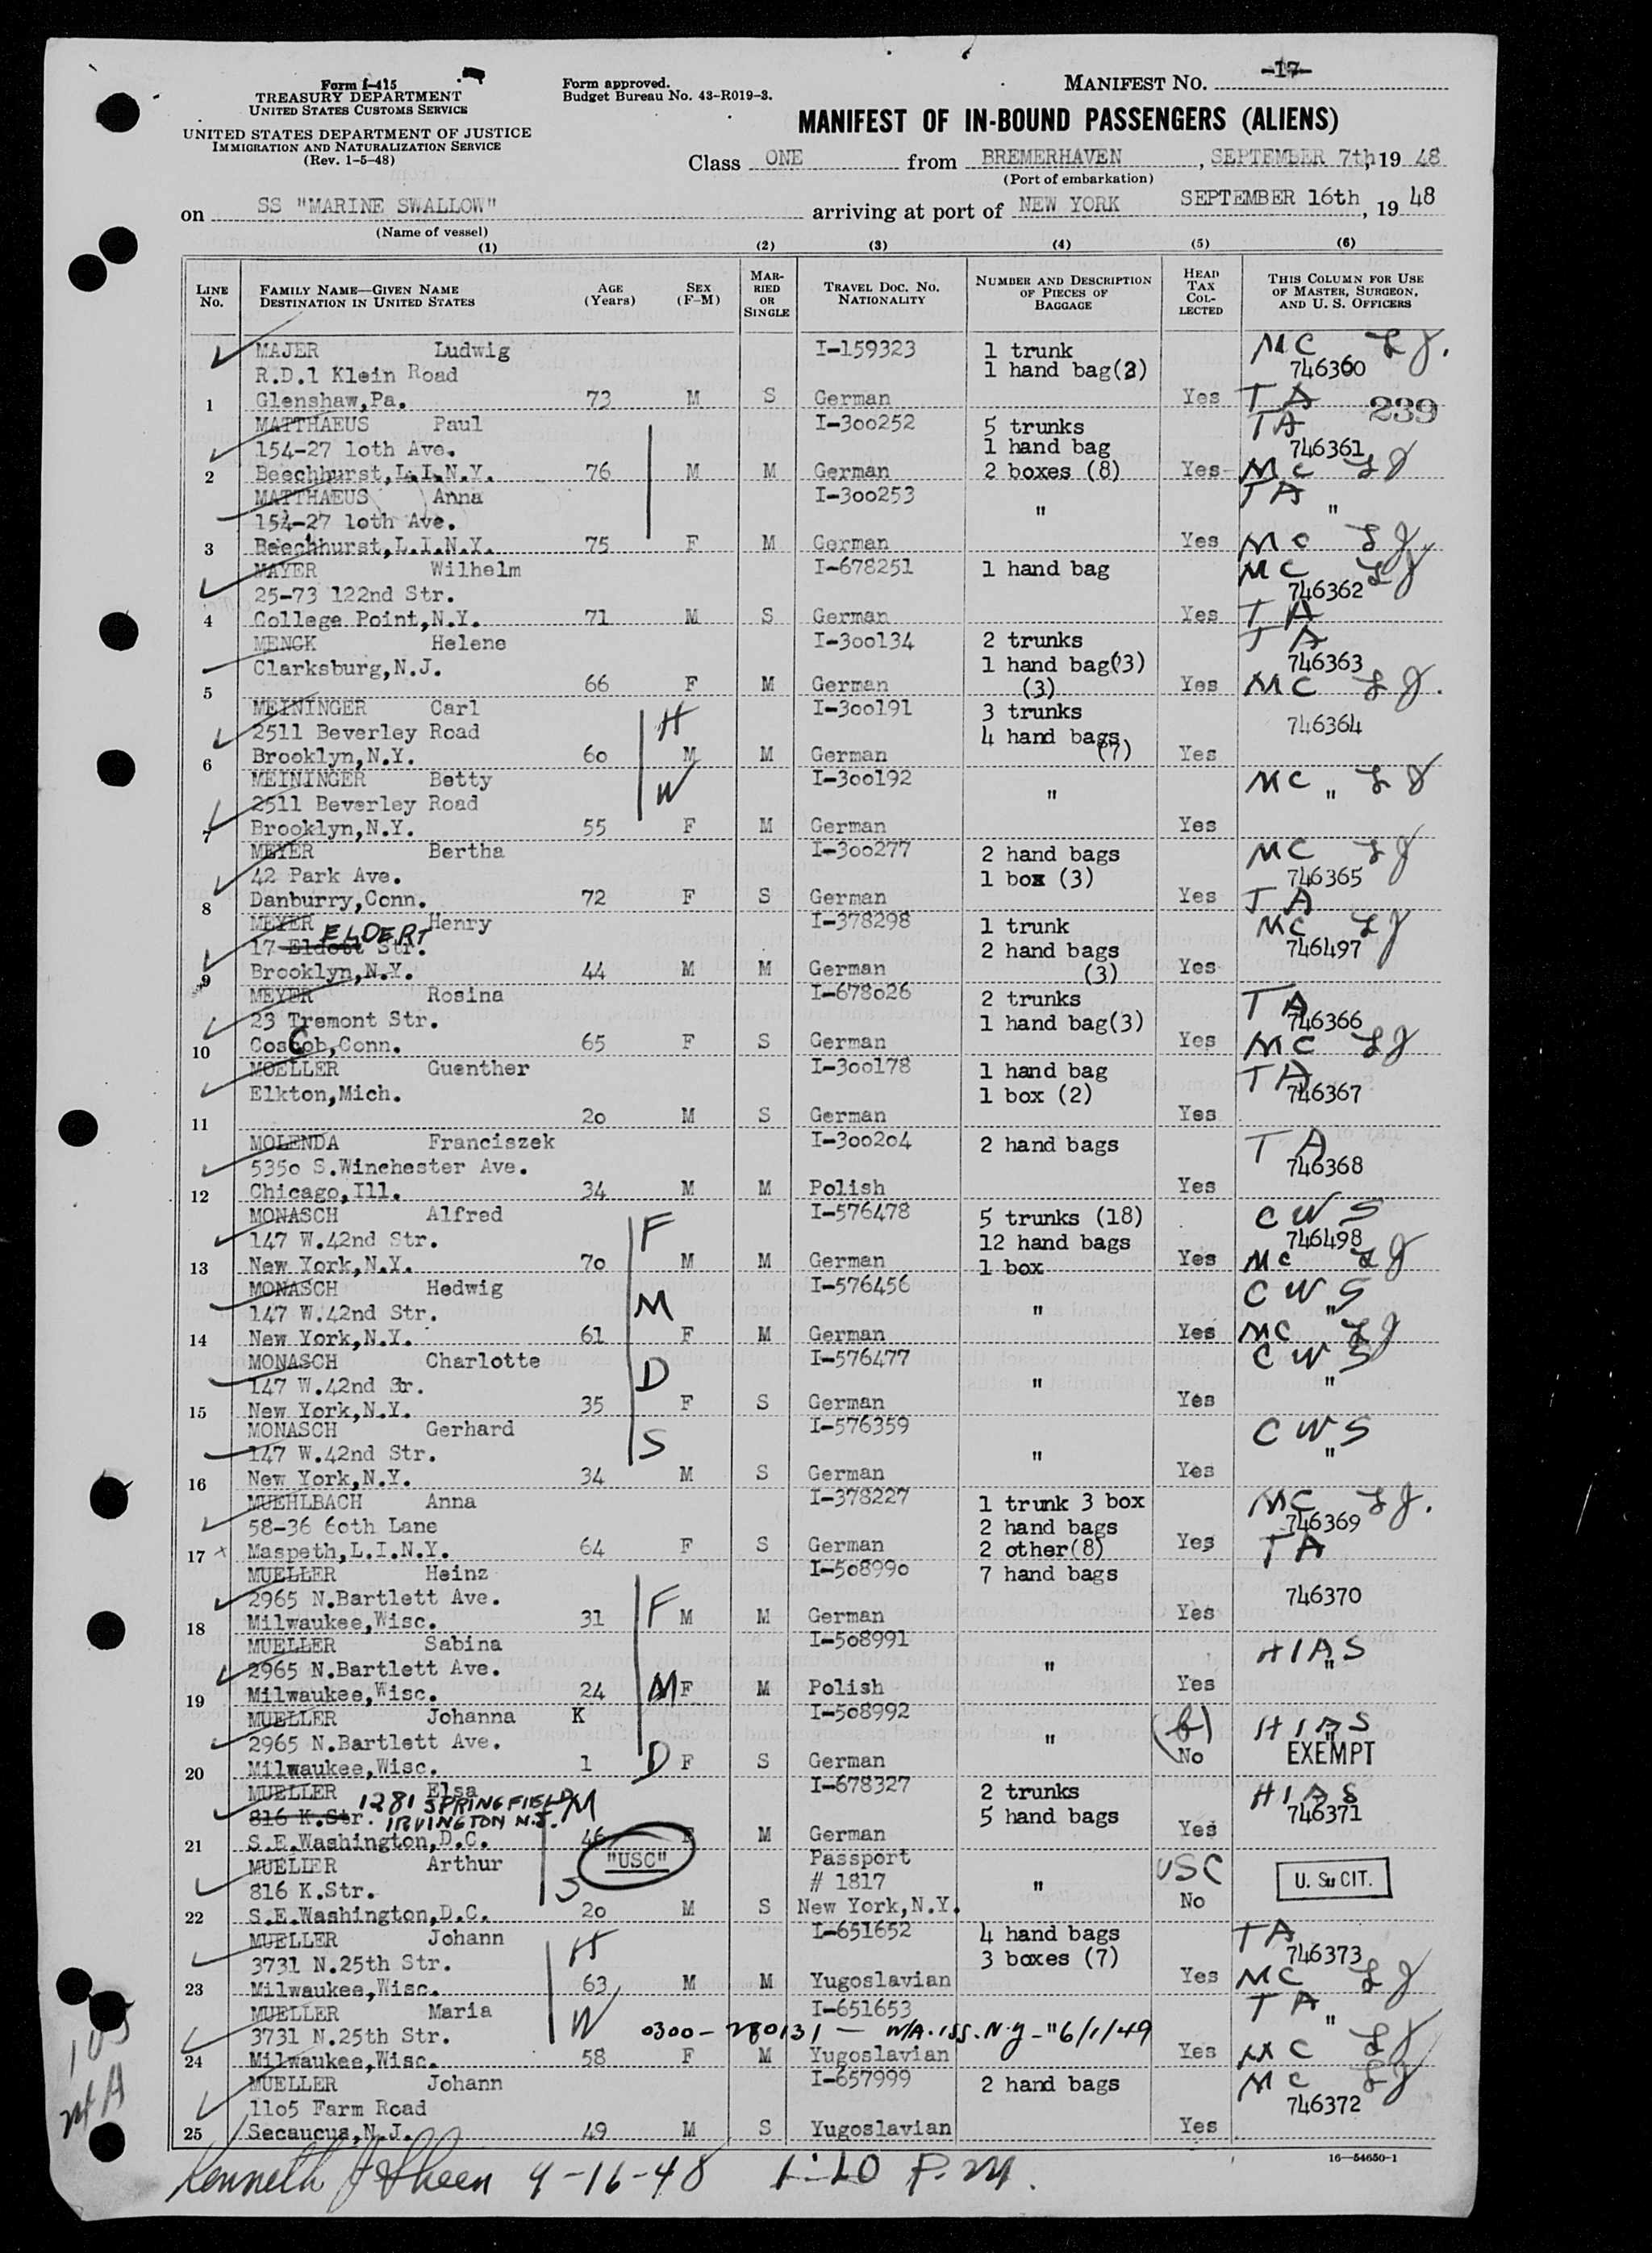 Form I-415
TREASURY DEPARTMENT
UNITED STATES CUSTOMS SERVICE
UNITED STATES DEPARTMENT OF JUSTICE
IMMIGRATION AND NATURALIZATION SERVICE
(Rev. 1-5-48)
Form approved.
Budget Bureau No. 43-R019-3.
MANIFEST NO. -17-
MANIFEST OF IN-BOUND PASSENGERS (ALIENS)
Class ONE from BREMERHAVEN, SEPTEMBER 7th, 19 48
(Port of embarkation)
on SS "MARINE SWALLOW" arriving at port of NEW YORK SEPTEMBER 16th, 19 48
(Name of vessel)
(1) (2) (3) (4) (5) (6)
LINE No. FAMILY NAME—GIVEN NAME DESTINATION IN UNITED STATES AGE (Years) SEX (F-M) MARRIED OR SINGLE TRAVEL DOC. NO. NATIONALITY NUMBER AND DESCRIPTION OF PIECES OF BAGGAGE HEAD TAX COLLECTED THIS COLUMN FOR USE OF MASTER, SURGEON, AND U. S. OFFICERS
MAJER Ludwig I-159323 1 trunk MC LJ.
R.D.1 Klein Road 1 hand bag(2) 746360
1 Glenshaw,Pa. 73 M S German Yes TA 239
MATTHAEUS Paul I-300252 5 trunks TA
154-27 10th Ave. 1 hand bag 746361
2 Beechhurst,L.I.N.Y. 76 M M German 2 boxes (8) Yes MC LJ
MATTHAEUS Anna I-300253 TA
154-27 10th Ave. " "
3 Beechhurst,L.I.N.Y. 75 F M German Yes MC LJ
MAYER Wilhelm I-678251 1 hand bag MC LJ
25-73 122nd Str. 746362
4 College Point,N.Y. 71 M S German Yes TA
MENCK Helene I-300134 2 trunks TA
Clarksburg,N.J. 1 hand bag(3) 746363
5 66 F M German (3) Yes MC LJ.
MEININGER Carl I-300191 3 trunks
2511 Beverley Road H 4 hand bags 746364
6 Brooklyn,N.Y. 60 M M German (7) Yes
MEININGER Betty I-300192 MC LJ
2511 Beverley Road W " "
7 Brooklyn,N.Y. 55 F M German Yes
MEYER Bertha I-300277 2 hand bags MC LJ
42 Park Ave. 1 box (3) 746365
8 Danburry,Conn. 72 F S German Yes TA
MEYER Henry I-378298 1 trunk MC LJ
17 Eldott ELDERT Str. 2 hand bags 746497
9 Brooklyn,N.Y. 44 M M German (3) Yes
MEYER Rosina I-678026 2 trunks TA
23 Tremont Str. 1 hand bag(3) 746366
10 CosCob,Conn. 65 F S German Yes MC LJ
MOELLER Guenther I-300178 1 hand bag TA
Elkton,Mich. 1 box (2) 746367
11 20 M S German Yes
MOLENDA Franciszek I-300204 2 hand bags TA
5350 S.Winchester Ave. 746368
12 Chicago,Ill. 34 M M Polish Yes
MONASCH Alfred F I-576478 5 trunks (18) CWS
147 W.42nd Str. 12 hand bags 746498
13 New York,N.Y. 70 M M German 1 box Yes MC LJ
MONASCH Hedwig I-576456 CWS
147 W.42nd Str. M " "
14 New York,N.Y. 61 F M German Yes MC LJ
MONASCH Charlotte I-576477 CWS
147 W.42nd Sr. D " "
15 New York,N.Y. 35 F S German Yes
MONASCH Gerhard I-576359 CWS
147 W.42nd Str. S " "
16 New York,N.Y. 34 M S German Yes
MUEHLBACH Anna I-378227 1 trunk 3 box MC LJ.
58-36 60th Lane 2 hand bags 746369
17 x Maspeth,L.I.N.Y. 64 F S German 2 other(8) Yes TA
MUELLER Heinz I-508990 7 hand bags
2965 N.Bartlett Ave. F 746370
18 Milwaukee,Wisc. 31 M M German Yes
MUELLER Sabina I-508991 HIAS
2965 N.Bartlett Ave. " "
19 Milwaukee,Wisc. 24 M F M Polish Yes
MUELLER Johanna K I-508992 HIAS
2965 N.Bartlett Ave. " (b) "
20 Milwaukee,Wisc. 1 D F S German No EXEMPT
MUELLER Elsa I-678327 2 trunks HIAS
816 K.Str. 1281 SPRINGFIELD M 5 hand bags 746371
IRVINGTON N.J.
21 S.E.Washington,D.C. 46 F M German Yes
MUELLER Arthur "USC" Passport USC
816 K.Str. S # 1817 " U. S. CIT.
22 S.E.Washington,D.C. 20 M S New York,N.Y. No
MUELLER Johann H I-651652 4 hand bags TA
3731 N.25th Str. 3 boxes (7) 746373
23 Milwaukee,Wisc. 63 M M Yugoslavian Yes MC LJ
MUELLER Maria W I-651653 TA
3731 N.25th Str. 0300-280131 — W/A.iss.N.Y-"6/1/49 "
24 Milwaukee,Wisc. 58 F M Yugoslavian Yes MC LJ
MUELLER Johann I-657999 2 hand bags MC LJ
1105 Farm Road 746372
25 Secaucus,N.J. 49 M S Yugoslavian Yes
16—54650-1
Kenneth J Sheen 9-16-48 1:10 P.M.